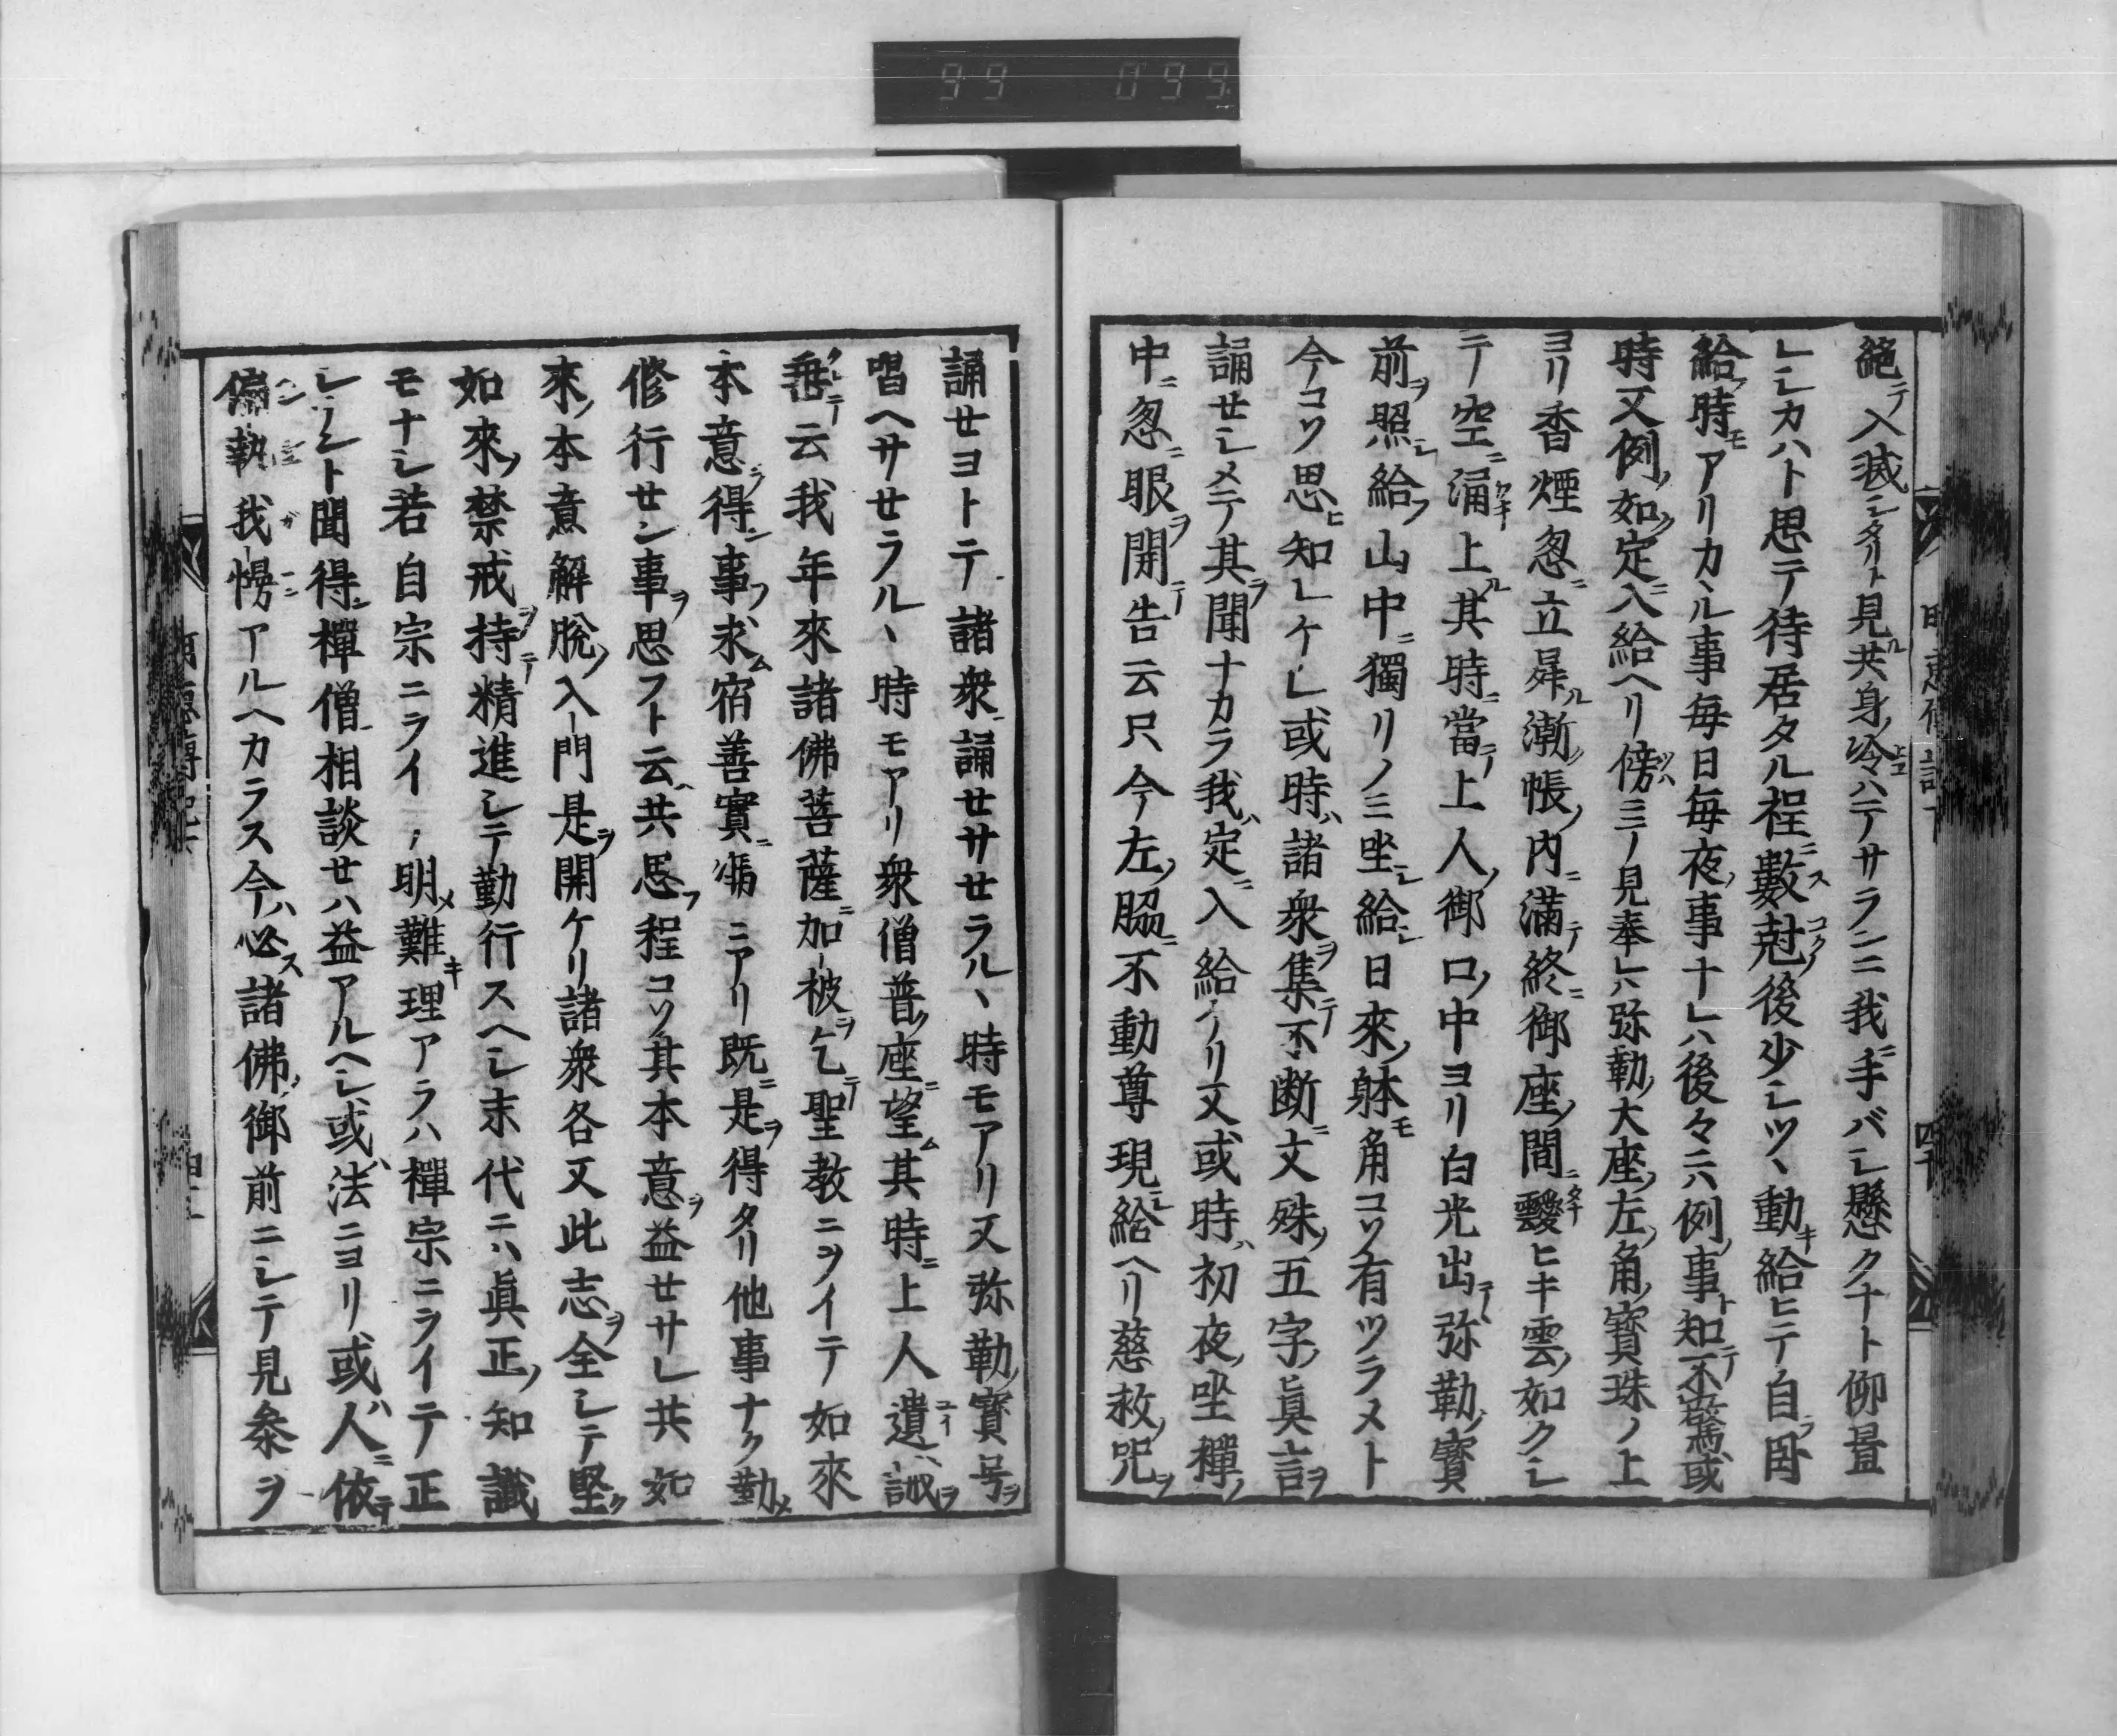 99 099
絶テ入滅シタリト見ル共身ノ冷ハテサランニ我ニ手バシ懸クナト仰置
レシカハト思テ待居タル程ニ數尅ノ後少シツヽ動キ給ヒテ自ラ卧
給フ時モアリカヽル事毎日毎夜ノ事ナレハ後々ニハ例ノ事ト知テ不驚或
時又例ノ如ク定ニ入給ヘリ傍ニノミ見奉レハ弥勒ノ大座ノ左ノ角ノ寳珠ノ上
ヨリ香煙忽ニ立昇ル漸ク帳ノ内ニ滿テ終ニ御座ノ間ニ靉ヒキ雲ノ如クシ
テ空ニ涌上ル其時ニ當テ上人ノ御口ノ中ヨリ白光出テ弥勒ノ寳
前ヲ照シ給フ山中ニ獨リノミ坐シ給シ日來ノ躰モ角コソ有ツラメト
今コソ思ヒ知レケレ或時ハ諸衆ヲ集テ不断ニ文殊ノ五字ノ眞言ヲ
誦セシメテ其ヲ聞ナカラ我ハ定ニ入給ヘリ又或時ハ初夜ノ坐禪ノ
中ニ忽ニ眼ヲ開テ告云只今左ノ脇ニ不動尊現シ給ヘリ慈救ノ咒ヲ
誦セヨトテ諸衆ニ誦セサセラルヽ時モアリ又弥勒ノ寳号ヲ
唱ヘサセラルヽ時モアリ衆僧普ク座ニ望ム其時ニ上人遺誡ヲ
垂レテ云我年來諸佛菩薩ニ加被ヲ乞テ聖教ニヲイテ如來
本意ヲ得ン事ヲ求ム宿善實ニアリ既ニ是ヲ得タリ他事ナク勤メ
修行セン事ヲ思フト云ヘ共思フ程コソ其本意ヲ益セサレ共如
來ノ本意解脫ノ入門是ヲ開ケリ諸衆各又此志ヲ全シテ堅ク
如來ノ禁戒ヲ持テ精進シテ勤行スヘシ末代ニハ眞正ノ知識
モナシ若自宗ニヲイテ明メ難キ理アラハ禪宗ニヲイテ正
シラント聞得ン禪僧ニ相談セハ益アルヘシ或ハ法ニヨリ或ハ人ニ依テ
偏執我慢アルヘカラス今ハ必ス諸佛ノ御前ニシテ見參ヲ